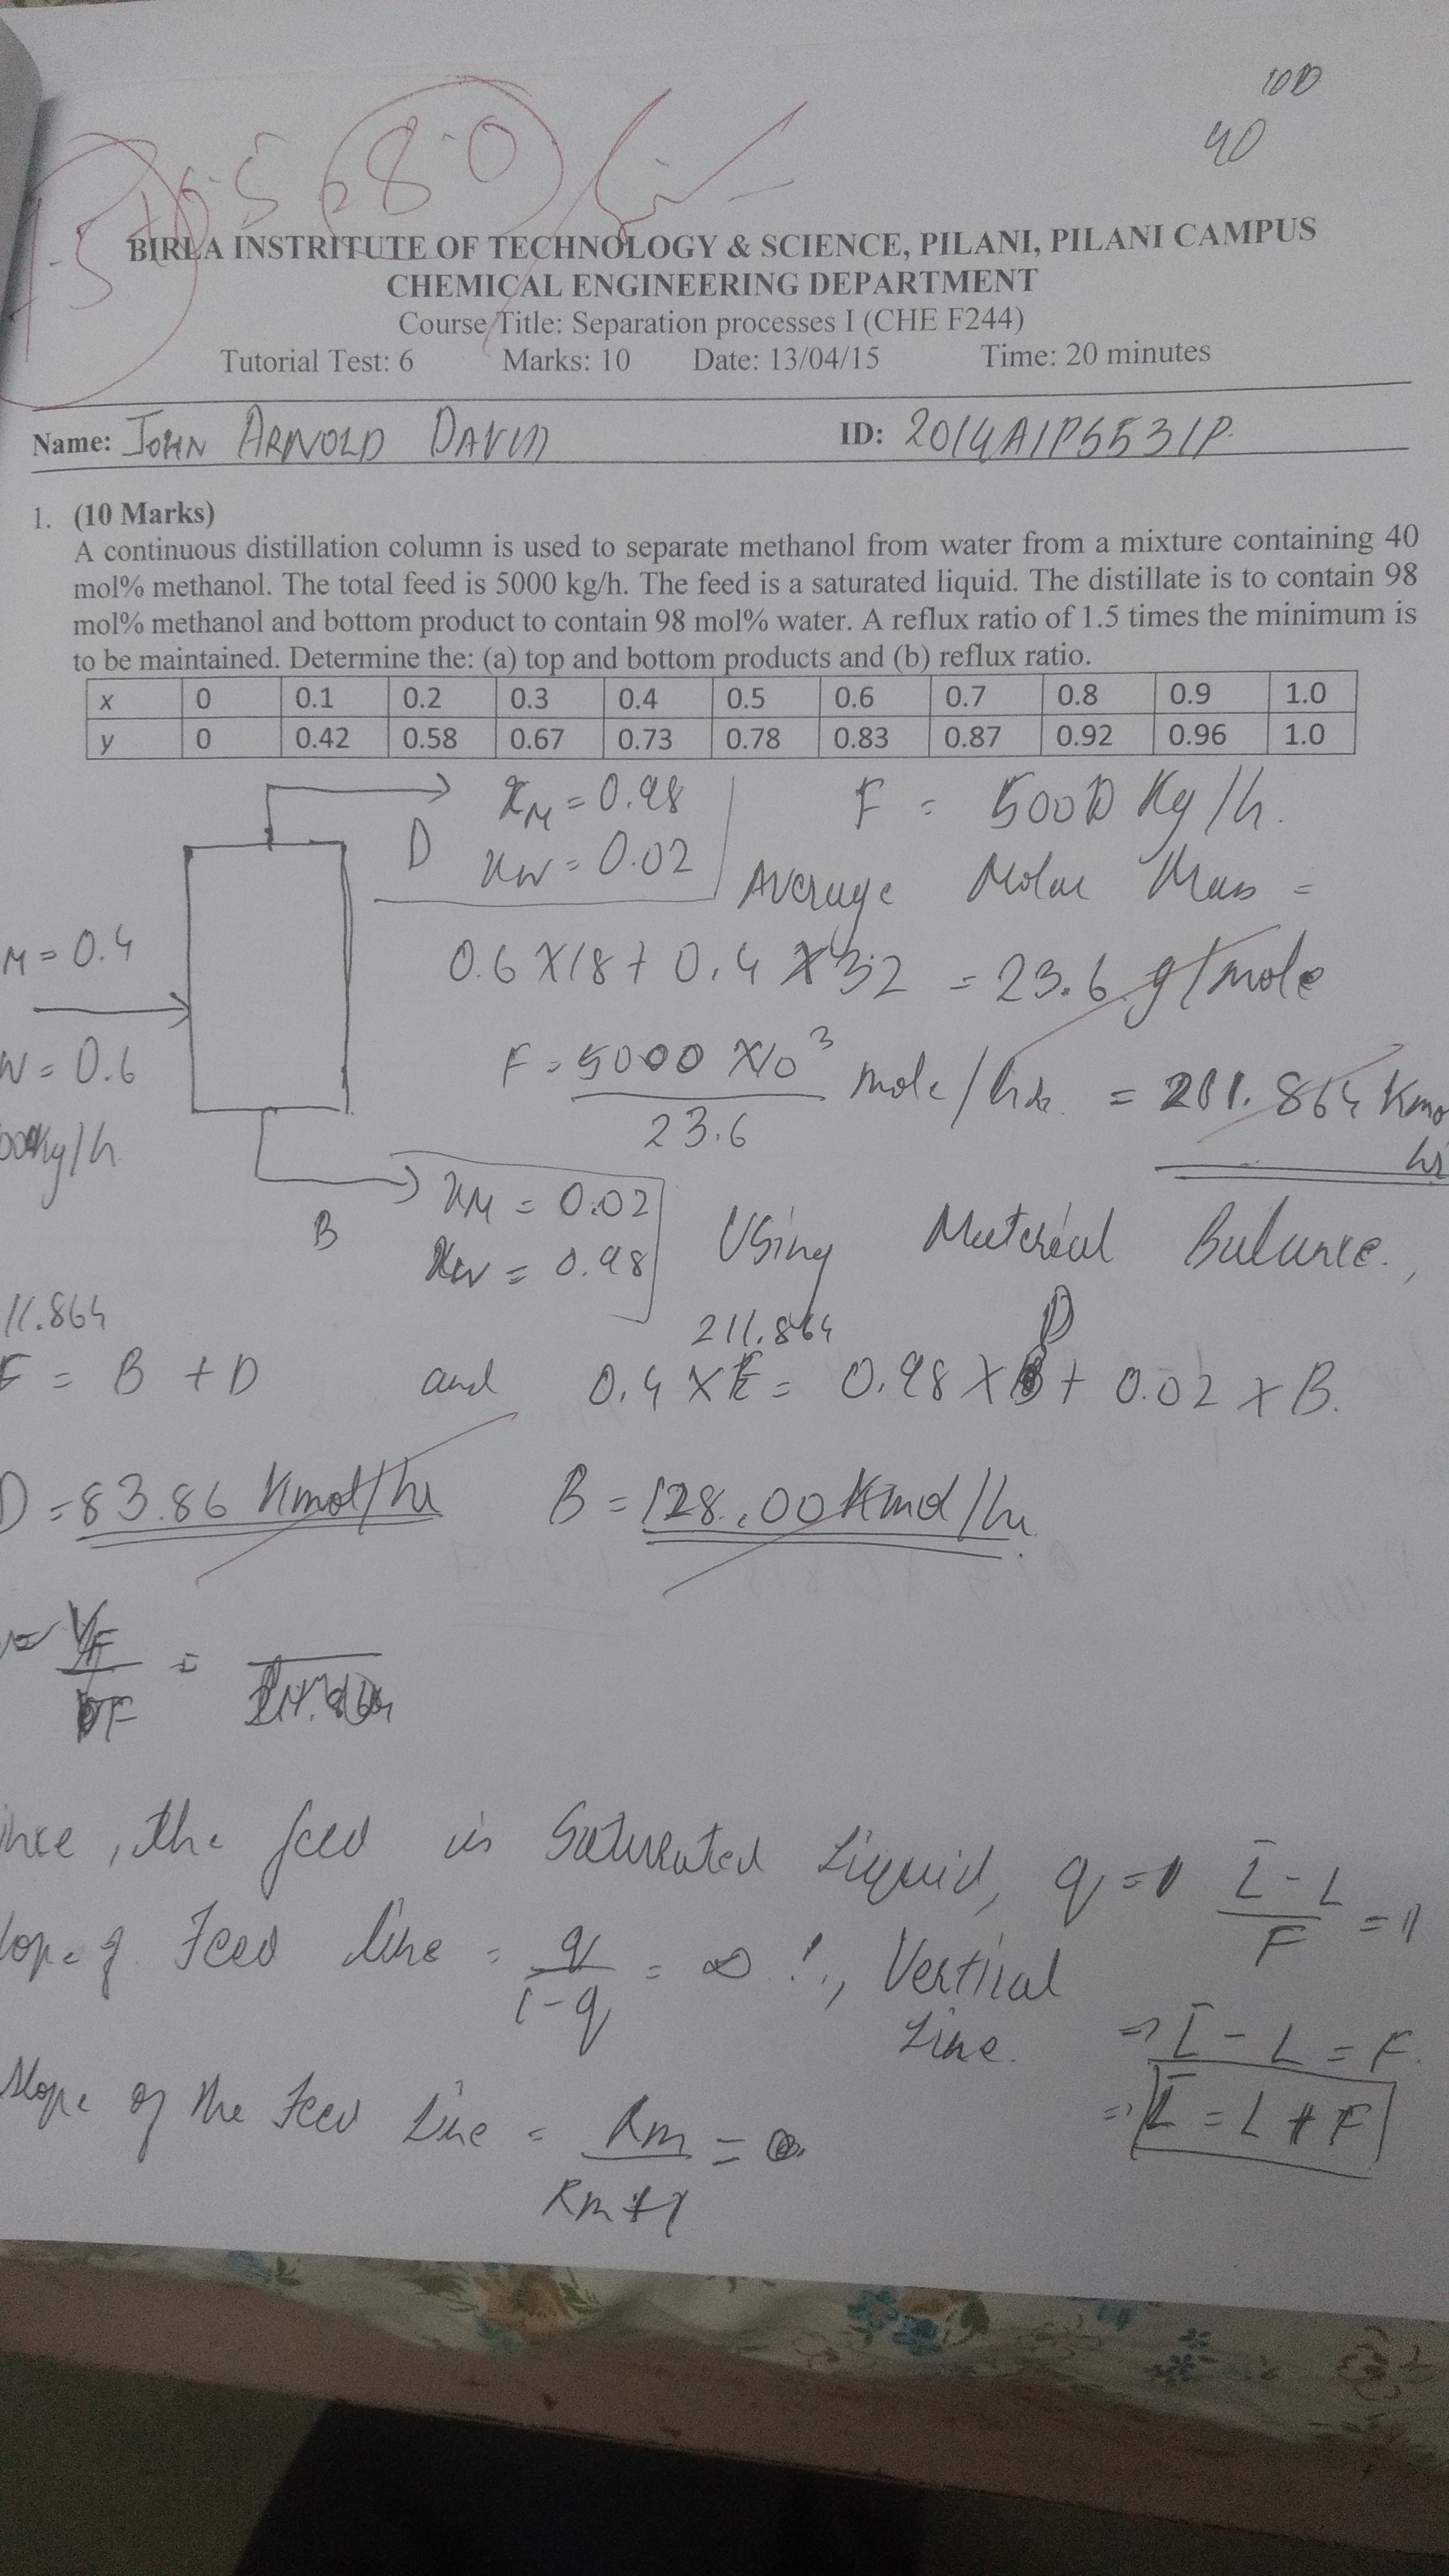 100
40
8.0
BIRLA INSTRITUTE OF TECHNOLOGY & SCIENCE, PILANI, PILANI CAMPUS
CHEMICAL ENGINEERING DEPARTMENT
Course Title: Separation processes I (CHE F244)
Tutorial Test: 6 Marks: 10 Date: 13/04/15 Time: 20 minutes
Name: JOHN ARNOLD DAVID ID: 2014A1PS531P
1. (10 Marks)
A continuous distillation column is used to separate methanol from water from a mixture containing 40
mol% methanol. The total feed is 5000 kg/h. The feed is a saturated liquid. The distillate is to contain 98
mol% methanol and bottom product to contain 98 mol% water. A reflux ratio of 1.5 times the minimum is
to be maintained. Determine the: (a) top and bottom products and (b) reflux ratio.
x 0 0.1 0.2 0.3 0.4 0.5 0.6 0.7 0.8 0.9 1.0
y 0 0.42 0.58 0.67 0.73 0.78 0.83 0.87 0.92 0.96 1.0
xM = 0.98 F = 5000 Kg/h.
D xW = 0.02 Average Molar Mass =
M = 0.4 0.6 X 18 + 0.4 X 32 = 23.6 g/mole
W = 0.6 F = 5000 X 10³ / 23.6 mole/hr = 211.864 Kmo
00Kg/h hr
B xM = 0.02 Using Material Balance,
xW = 0.98
11.864 211.864 D
F = B + D and 0.4 X F = 0.98 X + 0.02 X B.
D = 83.86 Kmol/hr B = 128.00 Kmol/hr
= VF / F =
ince, the feed is Saturated Liquid, q = 1 L̄ - L / F = 1
lope of Feed line = q / 1-q = ∞ ∴, Vertical
Line. ⇒ L̄ - L = F.
Slope of the Feed Line = Rm / Rm+1 = ∞ ⇒ L̄ = L + F